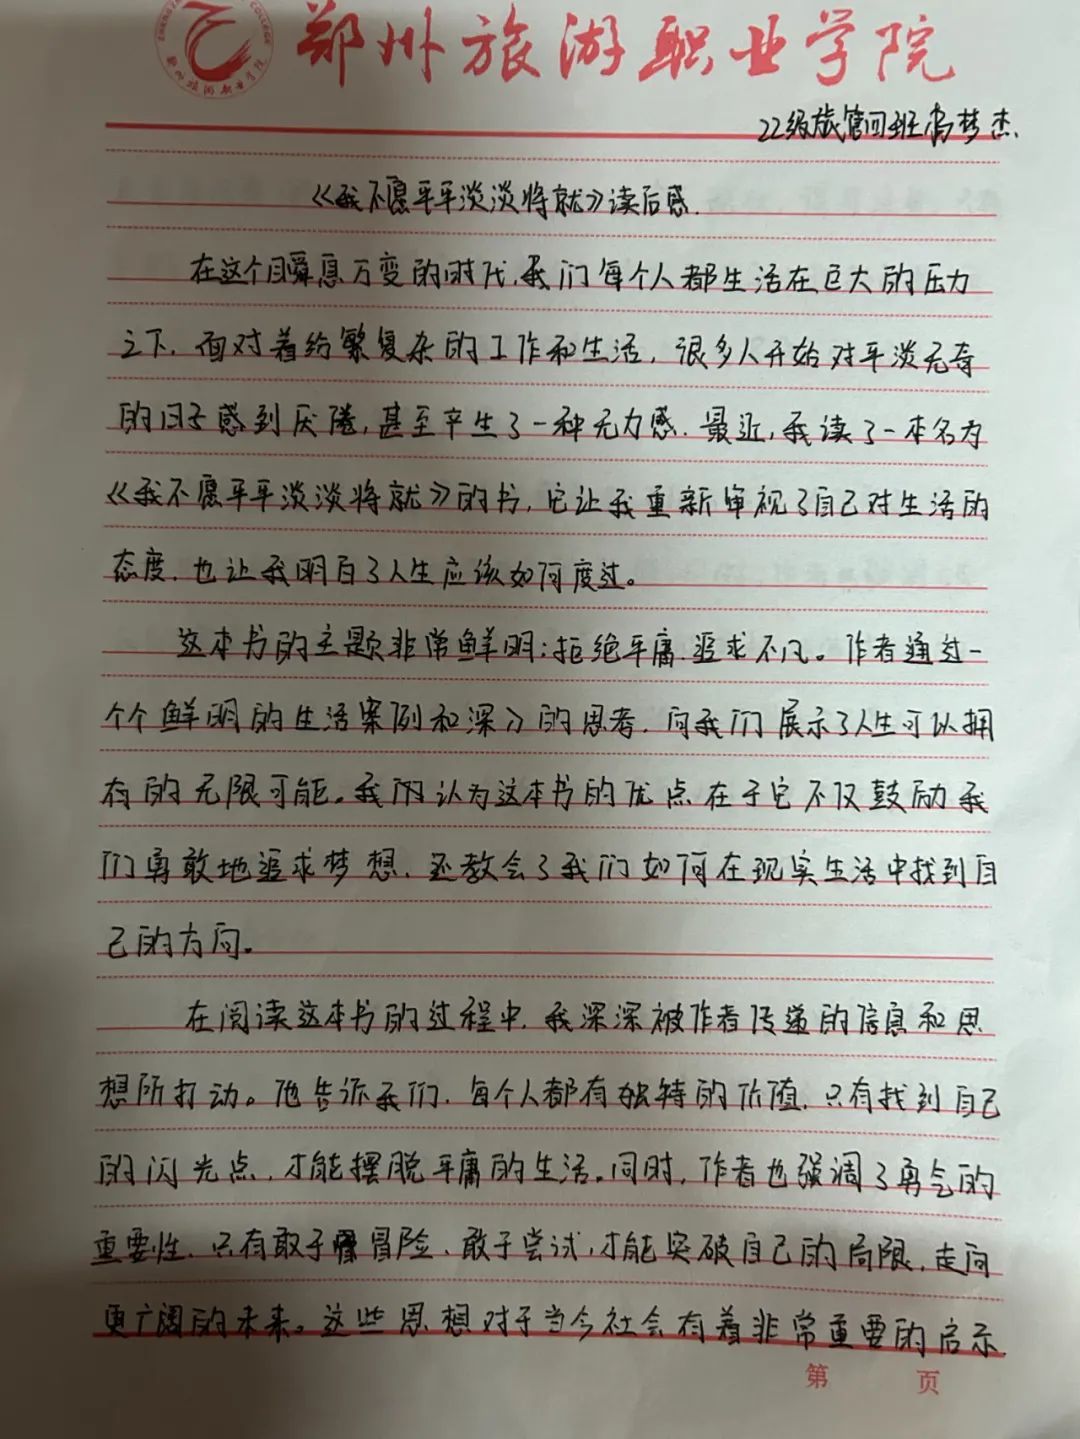 郑州旅游职业学院
22级旅管四班冯梦杰.
《我不愿平平淡淡将就》读后感.
在这个瞬息万变的时代,我们每个人都生活在巨大的压力
之下.面对着纷繁复杂的工作和生活,很多人开始对平淡无奇
的日子感到厌倦,甚至产生了一种无力感.最近,我读了一本名为
《我不愿平平淡淡将就》的书,它让我重新审视了自己对生活的
态度.也让我明白了人生应该如何度过。
这本书的主题非常鲜明:拒绝平庸.追求不凡。作者通过一
个个鲜明的生活案例和深入的思考.向我们展示了人生可以拥
有的无限可能。我所认为这本书的优点在于它不仅鼓励我
们勇敢地追求梦想.还教会了我们如何在现实生活中找到自
己的方向。
在阅读这本书的过程中.我深深被作者传递的信息和思
想所打动。他告诉我们.每个人都有独特的价值.只有找到自己
的闪光点,才能摆脱平庸的生活。同时,作者也强调了勇气的
重要性.只有敢于冒险、敢于尝试,才能突破自己的局限,走向
更广阔的未来。这些思想对于当今社会有着非常重要的启示.
第 页